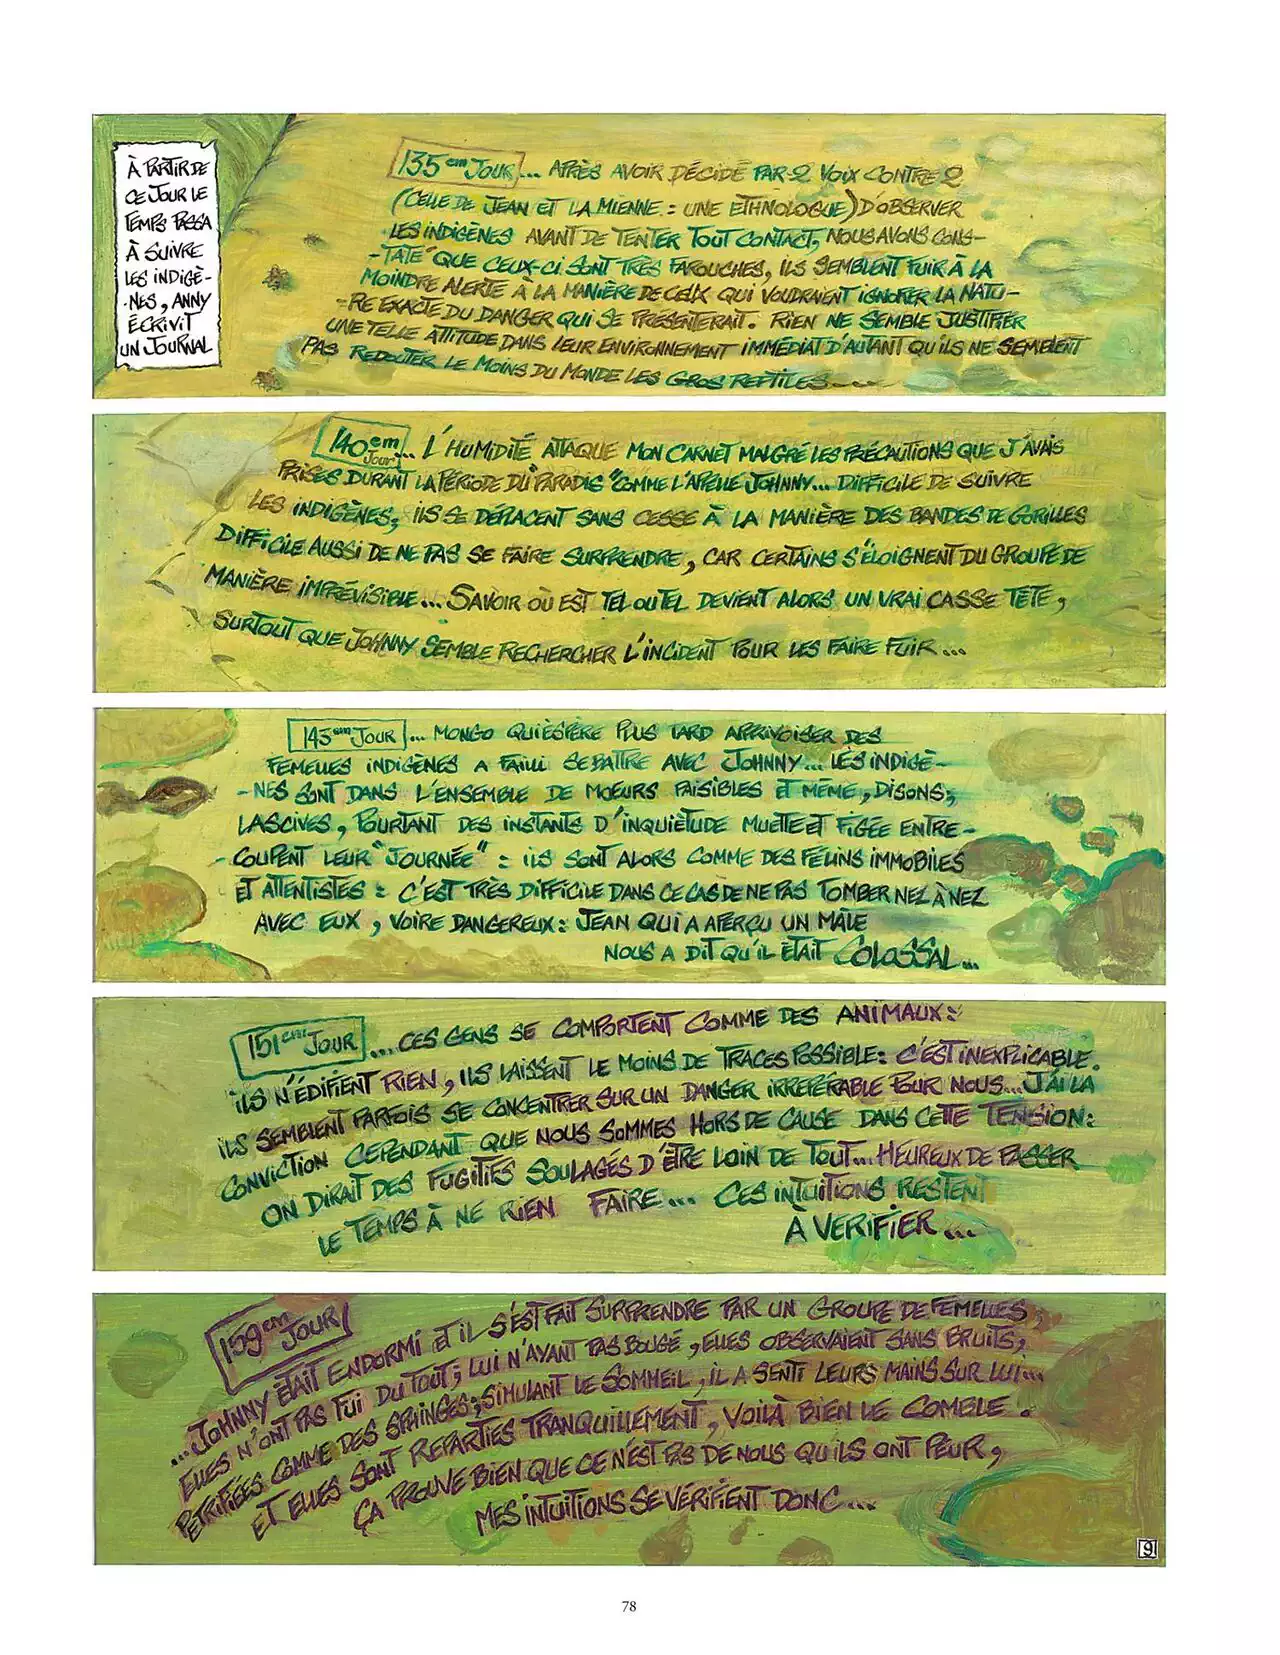 À PARTIR DE
CE JOUR LE
TEMPS PASSA
À SUIVRE
LES INDIGÈ-
-NES, ANNY
ÉCRIVIT
UN JOURNAL
135em JOUR... APRÈS AVOIR DÉCIDÉ PAR 2 VOIX CONTRE 2
(CELLE DE JEAN ET LA MIENNE : UNE ETHNOLOGUE) D'OBSERVER
LES INDIGÈNES AVANT DE TENTER TOUT CONTACT, NOUS AVONS CONS-
-TATÉ QUE CEUX-CI SONT TRÈS FAROUCHES, ILS SEMBLENT FUIR À LA
MOINDRE ALERTE À LA MANIÈRE DE CEUX QUI VOUDRAIENT IGNORER LA NATU-
-RE EXACTE DU DANGER QUI SE PRÉSENTERAIT. RIEN NE SEMBLE JUSTIFIER
UNE TELLE ATTITUDE DANS LEUR ENVIRONNEMENT IMMÉDIAT D'AUTANT QU'ILS NE SEMBLENT
PAS REDOUTER LE MOINS DU MONDE LES GROS REPTILES....
140em JOUR... L'HUMIDITÉ ATTAQUE MON CARNET MALGRÉ LES PRÉCAUTIONS QUE J'AVAIS
PRISES DURANT LA PÉRIODE DU "PARADIS" COMME L'APELLE JOHNNY... DIFFICILE DE SUIVRE
LES INDIGÈNES, ILS SE DÉPLACENT SANS CESSE À LA MANIÈRE DES BANDES DE GORILLES
DIFFICILE AUSSI DE NE PAS SE FAIRE SURPRENDRE, CAR CERTAINS S'ÉLOIGNENT DU GROUPE DE
MANIÈRE IMPRÉVISIBLE... SAVOIR OÙ EST TEL OU TEL DEVIENT ALORS UN VRAI CASSE TÊTE,
SURTOUT QUE JOHNNY SEMBLE RECHERCHER L'INCIDENT POUR LES FAIRE FUIR...
143em JOUR... MONGO QUI ÉSPÈRE PLUS TARD APPRIVOISER DES
FEMELLES INDIGÈNES A FAILLI SE BATTRE AVEC JOHNNY... LES INDIGÈ-
-NES SONT DANS L'ENSEMBLE DE MOEURS PAISIBLES ET MÊME, DISONS,
LASCIVES, POURTANT DES INSTANTS D'INQUIÈTUDE MUETTE ET FIGÉE ENTRE-
-COUPENT LEUR "JOURNÉE" : ILS SONT ALORS COMME DES FÉLINS IMMOBILES
ET ATTENTISTES : C'EST TRÈS DIFFICILE DANS CE CAS DE NE PAS TOMBER NEZ À NEZ
AVEC EUX, VOIRE DANGEREUX : JEAN QUI A APERÇU UN MÂLE
NOUS A DIT QU'IL ÉTAIT COLOSSAL...
151em JOUR... CES GENS SE COMPORTENT COMME DES ANIMAUX :
ILS N'ÉDIFIENT RIEN, ILS LAISSENT LE MOINS DE TRACES POSSIBLE : C'EST INEXPLICABLE.
ILS SEMBLENT PARFOIS SE CONCENTRER SUR UN DANGER IRREPÉRABLE POUR NOUS... J'AI LA
CONVICTION CEPENDANT QUE NOUS SOMMES HORS DE CAUSE DANS CETTE TENSION :
ON DIRAIT DES FUGITIFS SOULAGÉS D'ÊTRE LOIN DE TOUT... HEUREUX DE PASSER
LE TEMPS À NE RIEN FAIRE... CES INTUITIONS RESTENT
À VERIFIER...
159em JOUR
...JOHNNY ÉTAIT ENDORMI ET IL S'EST FAIT SURPRENDRE PAR UN GROUPE DE FEMELLES,
ELLES N'ONT PAS FUI DU TOUT ; LUI N'AYANT PAS BOUGÉ, ELLES OBSERVAIENT SANS BRUITS,
PETRIFIÉES COMME DES SPHINGES ; SIMULANT LE SOMMEIL, IL A SENTI LEURS MAINS SUR LUI...
ET ELLES SONT REPARTIES TRANQUILLEMENT, VOILÀ BIEN LE COMBLE !
ÇA PROUVE BIEN QUE CE N'EST PAS DE NOUS QU'ILS ONT PEUR,
MES INTUITIONS SE VÉRIFIENT DONC...
9
78